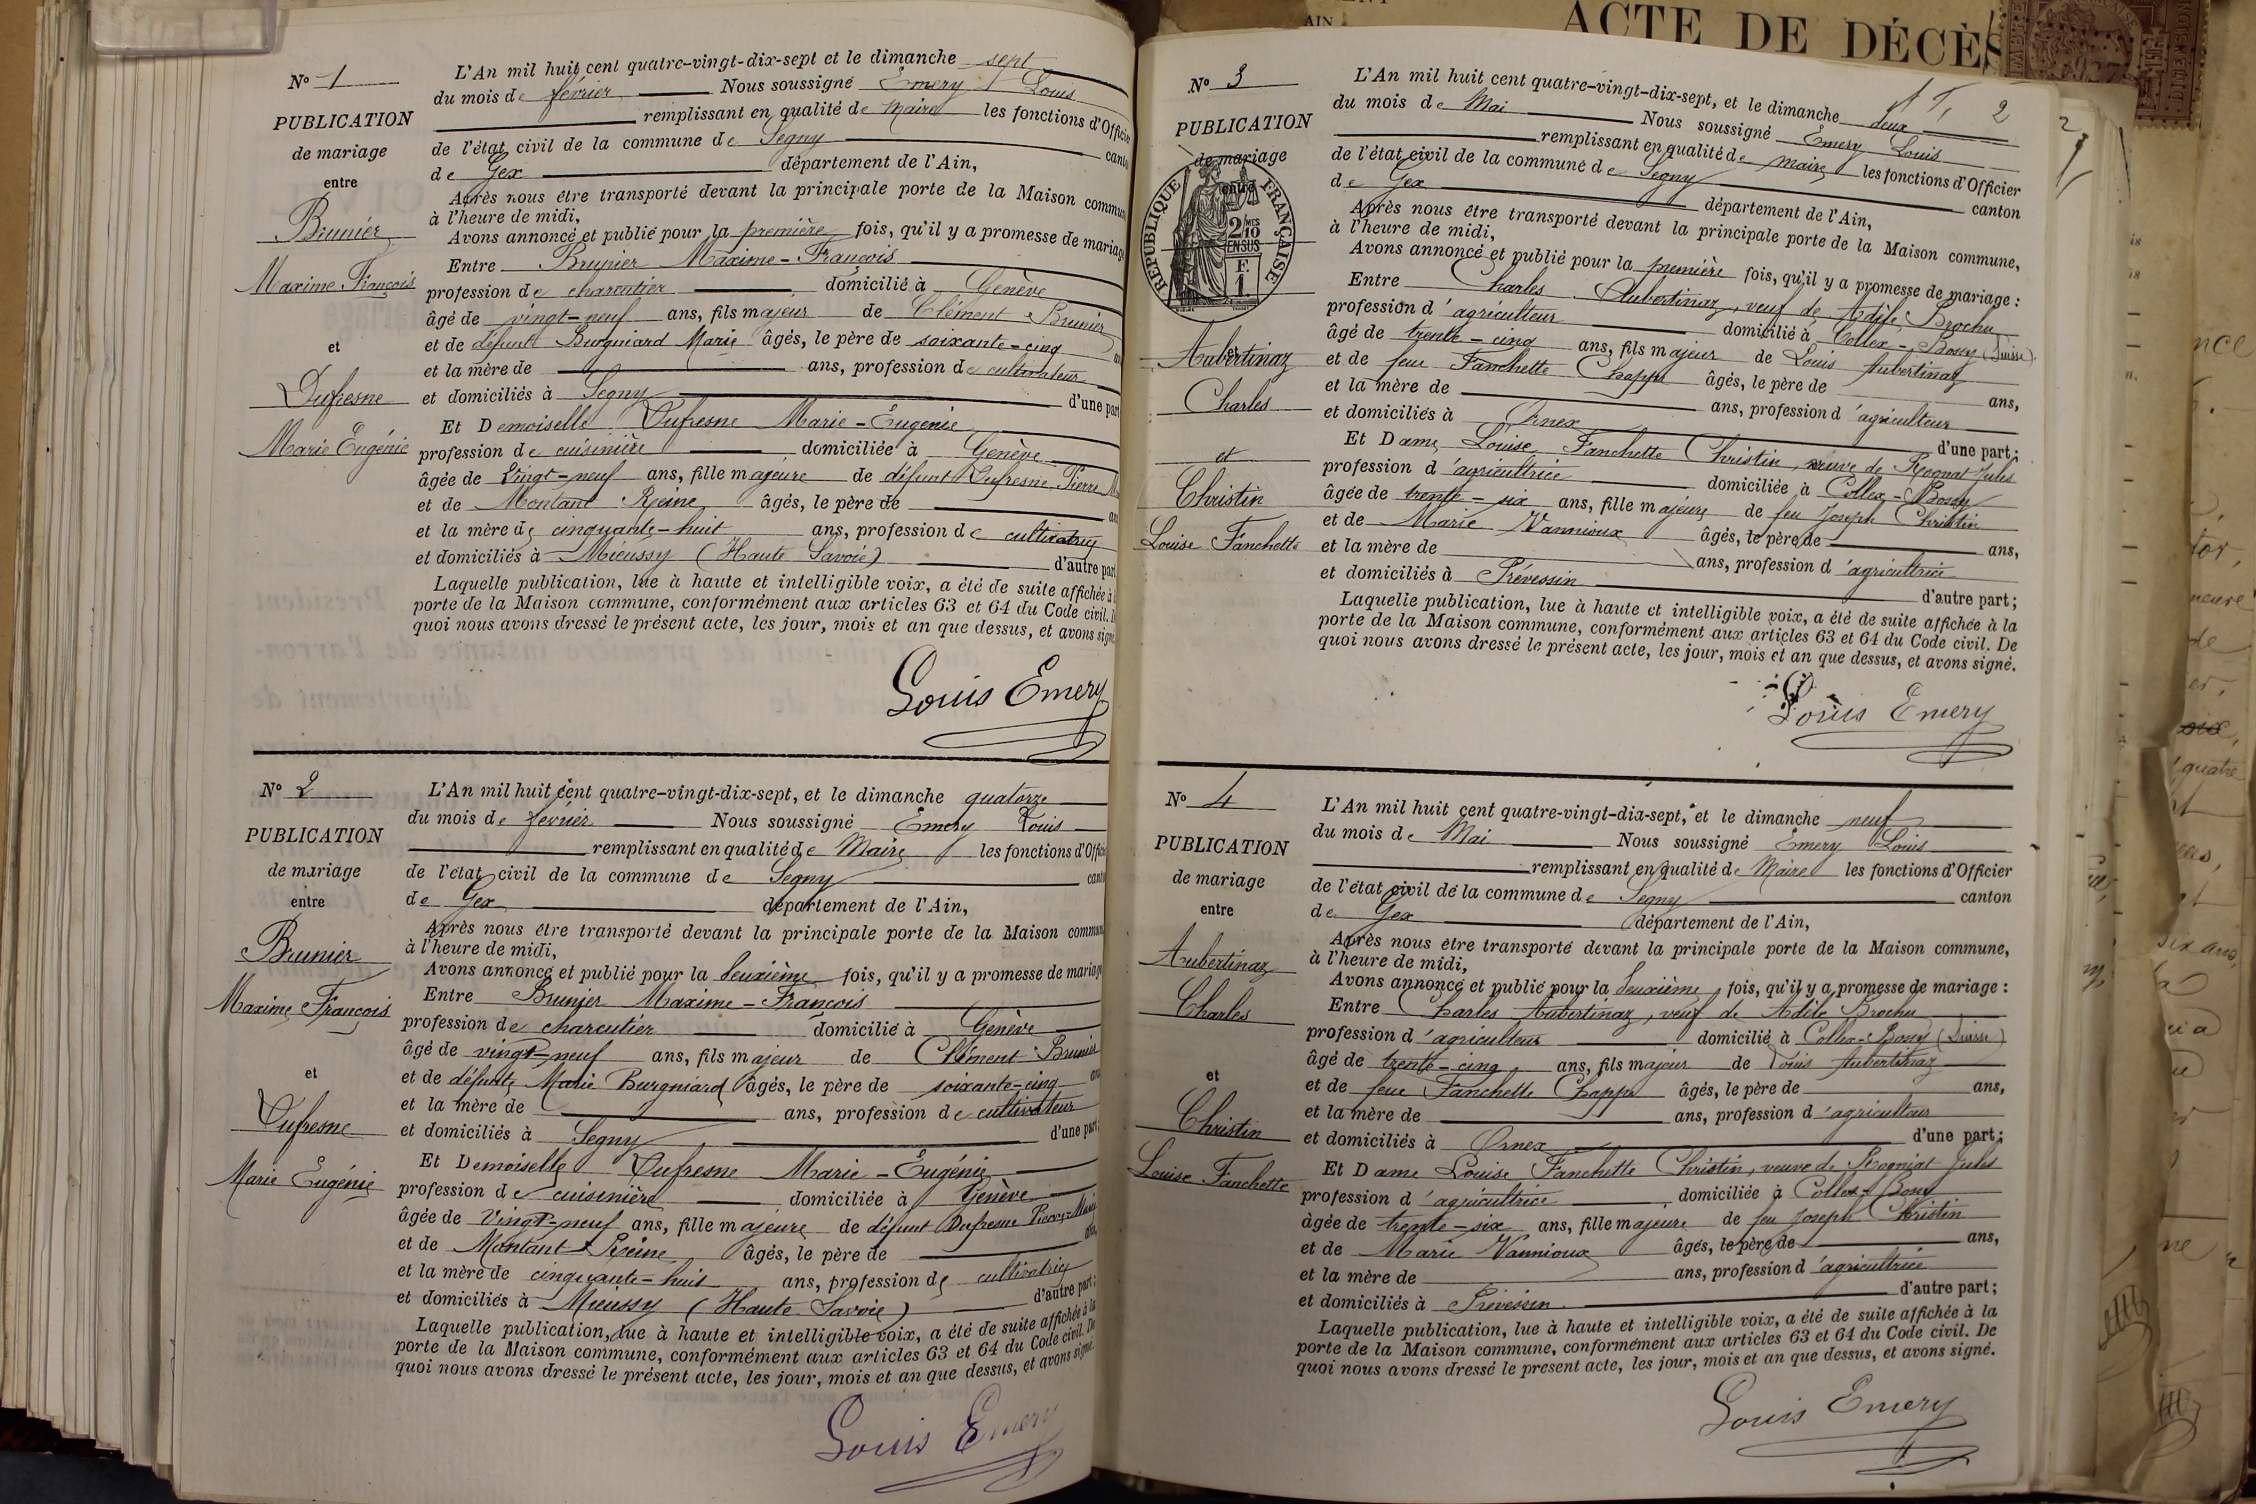 N° 1
PUBLICATION
de mariage
entre
Brunier
Maxime François
et
Dufresne
Marie Eugénie
L'An mil huit cent quatre-vingt-dix-sept et le dimanche sept
du mois de février Nous soussigné Emery Louis
remplissant en qualité de maire les fonctions d'Officier
de l'état civil de la commune de Segny canto
de Gex département de l'Ain,
Après nous être transporté devant la principale porte de la Maison commun
à l'heure de midi,
Avons annoncé et publié pour la première fois, qu'il y a promesse de mariage
Entre Brunier Maxime-François
profession de charcutier domicilié à Genève
âgé de vingt-neuf ans, fils majeur de Clément Brunier
et de défunte Burgniard Marie âgés, le père de soixante-cinq an
et la mère de ans, profession de cultivateur
et domiciliés à Segny d'une part
Et Demoiselle Dufresne Marie-Eugénie
profession de cuisinière domiciliée à Genève
âgée de Vingt-neuf ans, fille majeure de défunt Dufresne Pierre M
et de Montant Reine âgés, le père de an
et la mère de cinquante-huit ans, profession de cultivatrice
et domiciliés à Mieussy (Haute Savoie) d'autre part
Laquelle publication, lue à haute et intelligible voix, a été de suite affichée à l
porte de la Maison commune, conformément aux articles 63 et 64 du Code civil. D
quoi nous avons dressé le présent acte, les jour, mois et an que dessus, et avons signé
Louis Emery
N° 2
PUBLICATION
de mariage
entre
Brunier
Maxime François
et
Dufresne
Marie Eugénie
L'An mil huit cent quatre-vingt-dix-sept, et le dimanche quatorze
du mois de février Nous soussigné Emery Louis
remplissant en qualité de Maire les fonctions d'Officie
de l'état civil de la commune de Segny canto
de Gex département de l'Ain,
Après nous être transporté devant la principale porte de la Maison commun
à l'heure de midi,
Avons annoncé et publié pour la deuxième fois, qu'il y a promesse de mariage
Entre Brunier Maxime-François
profession de charcutier domicilié à Genève
âgé de vingt-neuf ans, fils majeur de Clément Brunier
et de défunte Marie Burgniard âgés, le père de soixante-cinq ans
et la mère de ans, profession de cultivateur
et domiciliés à Segny d'une part;
Et Demoiselle Dufresne Marie-Eugénie
profession de cuisinière domiciliée à Genève
âgée de Vingt-neuf ans, fille majeure de défunt Dufresne Pierre-Marie
et de Montant Reine âgés, le père de ans,
et la mère de cinquante-huit ans, profession de cultivatrice
et domiciliés à Mieussy (Haute Savoie) d'autre part;
Laquelle publication, lue à haute et intelligible voix, a été de suite affichée à la
porte de la Maison commune, conformément aux articles 63 et 64 du Code civil. De
quoi nous avons dressé le présent acte, les jour, mois et an que dessus, et avons signé.
Louis Emery
ACTE DE DÉCÈS
AIN
N° 3
PUBLICATION
de mariage
entre
RÉPUBLIQUE FRANÇAISE
2/10
EN SUS
F.
1
Aubertinaz
Charles
et
Christin
Louise Fanchette
2
L'An mil huit cent quatre-vingt-dix-sept, et le dimanche deux
du mois de Mai Nous soussigné Emery Louis
remplissant en qualité de maire les fonctions d'Officier
de l'état civil de la commune de Segny canton
de Gex département de l'Ain,
Après nous être transporté devant la principale porte de la Maison commune,
à l'heure de midi,
Avons annoncé et publié pour la première fois, qu'il y a promesse de mariage :
Entre Charles Aubertinaz, veuf de Adèle Brochu
profession d'agriculteur domicilié à Collex-Bossy (Suisse)
âgé de trente-cinq ans, fils majeur de Louis Aubertinaz
et de feue Fanchette Chappe âgés, le père de ans,
et la mère de ans, profession d'agriculteur
et domiciliés à Ornex d'une part;
Et Dame Louise Fanchette Christin, veuve de Jules
profession d'agricultrice domiciliée à Collex-Bossy
âgée de trente-six ans, fille majeure de feu Joseph Christin
et de Marie Vannioux âgés, le père de ans,
et la mère de ans, profession d'agricultrice
et domiciliés à Prévessin d'autre part;
Laquelle publication, lue à haute et intelligible voix, a été de suite affichée à la
porte de la Maison commune, conformément aux articles 63 et 64 du Code civil. De
quoi nous avons dressé le présent acte, les jour, mois et an que dessus, et avons signé.
Louis Emery
N° 4
PUBLICATION
de mariage
entre
Aubertinaz
Charles
et
Christin
Louise Fanchette
L'An mil huit cent quatre-vingt-dix-sept, et le dimanche neuf
du mois de Mai Nous soussigné Emery Louis
remplissant en qualité de Maire les fonctions d'Officier
de l'état civil de la commune de Segny canton
de Gex département de l'Ain,
Après nous être transporté devant la principale porte de la Maison commune,
à l'heure de midi,
Avons annoncé et publié pour la deuxième fois, qu'il y a promesse de mariage :
Entre Charles Aubertinaz, veuf de Adèle Brochu
profession d'agriculteur domicilié à Collex-Bossy (Suisse)
âgé de trente-cinq ans, fils majeur de Louis Aubertinaz
et de feue Fanchette Chappe âgés, le père de ans,
et la mère de ans, profession d'agriculteur
et domiciliés à Ornex d'une part;
Et Dame Louise Fanchette Christin, veuve de Jules
profession d'agricultrice domiciliée à Collex-Bossy
âgée de trente-six ans, fille majeure de feu Joseph Christin
et de Marie Vannioux âgés, le père de ans,
et la mère de ans, profession d'agricultrice
et domiciliés à Prévessin d'autre part;
Laquelle publication, lue à haute et intelligible voix, a été de suite affichée à la
porte de la Maison commune, conformément aux articles 63 et 64 du Code civil. De
quoi nous avons dressé le présent acte, les jour, mois et an que dessus, et avons signé.
Louis Emery